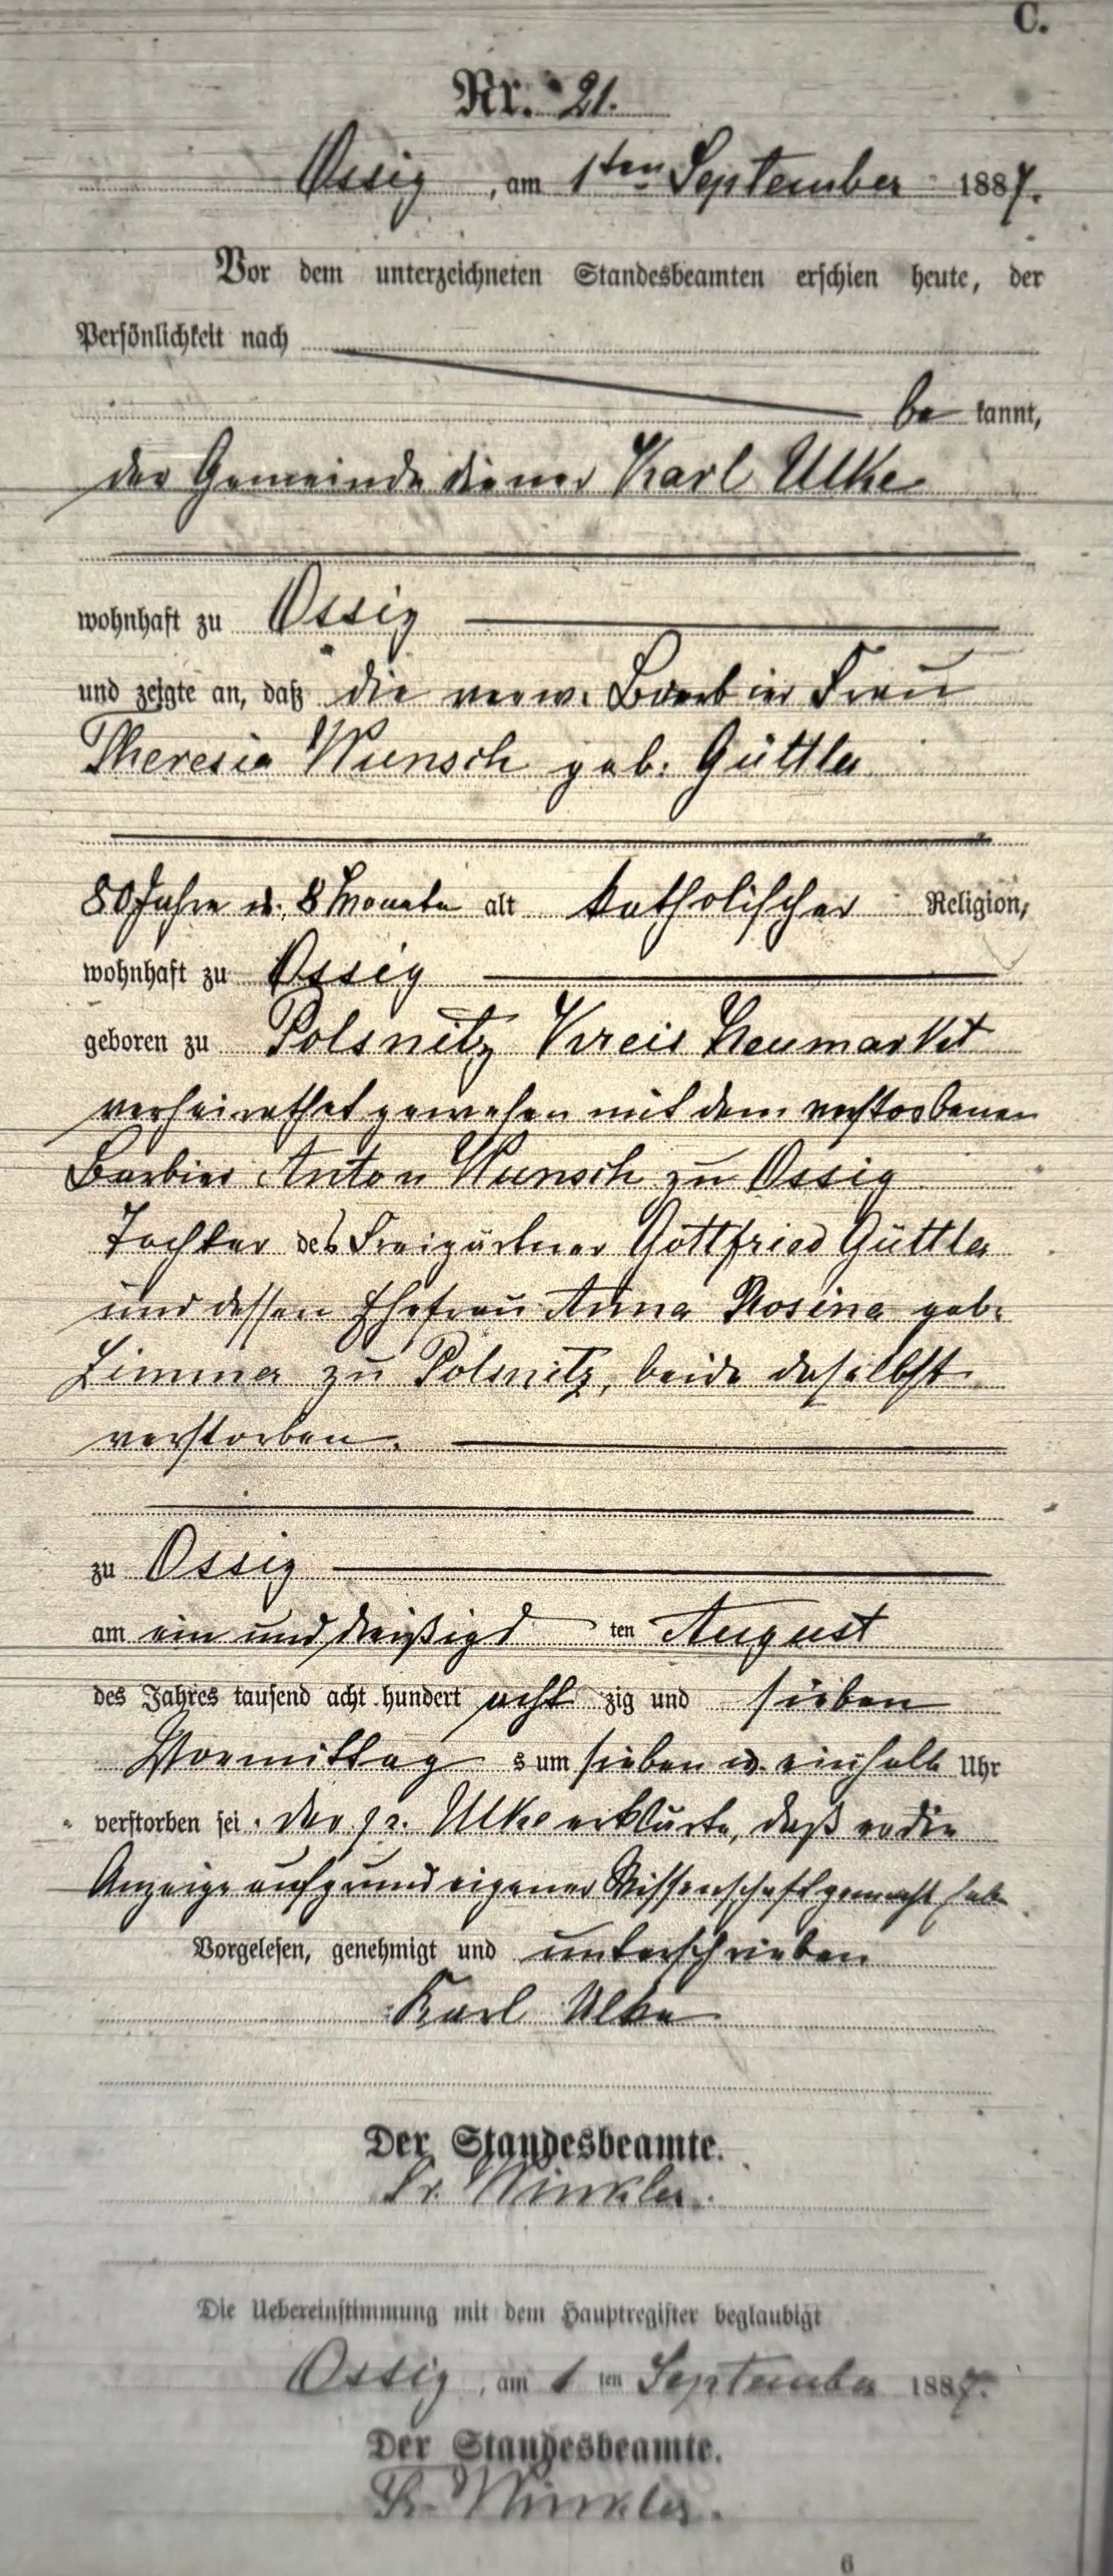 C.
Nr. 21.
Ossig, am 1ten September 1887.
Vor dem unterzeichneten Standesbeamten erschien heute, der
Persönlichkeit nach
be kannt,
der Gemeindediener Karl Ulke
wohnhaft zu Ossig
und zeigte an, daß die verw. Barbier Frau
Theresia Wunsch geb. Güttler
80 Jahre u. 8 Monate alt katholischer Religion,
wohnhaft zu Ossig
geboren zu Polsnitz Kreis Neumarkt
verheirathet gewesen mit dem verstorbenen
Barbier Anton Wunsch zu Ossig
Tochter des Freigärtner Gottfried Güttler
und dessen Ehefrau Anna Rosina geb.
zu Polsnitz, beide daselbst
verstorben.
zu Ossig
am ein und dreißigs ten August
des Jahres tausend acht hundert acht zig und sieben
Vormittag s um sieben u. einhalb Uhr
verstorben sei. Der p. Ulke erklärte, daß er die
Anzeige aufgrund eigener Wissenschaft gemacht habe
Vorgelesen, genehmigt und unterschrieben
Karl Ulke
Der Standesbeamte.
Fr. Winkler.
Die Uebereinstimmung mit dem Hauptregister beglaubigt
Ossig, am 1 ten September 1887.
Der Standesbeamte.
Fr. Winkler.
6